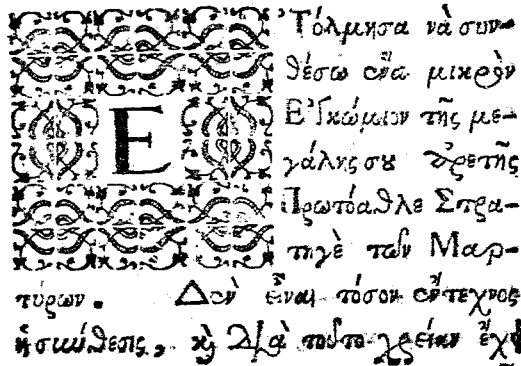 Ἐτόλμησα νὰ συν-
θέσω ἕνα μικρὸν
Ἐγκώμιον τῆς με-
γάλης σου ἀρετῆς
Πρωτόαθλε Στρα-
τηγὲ τῶν Μαρ-
τύρων. Δὲν εἶναι τόσον ἔντεχνος
ἡ σύνθεσις, καὶ διὰ τοῦτο χρείαν